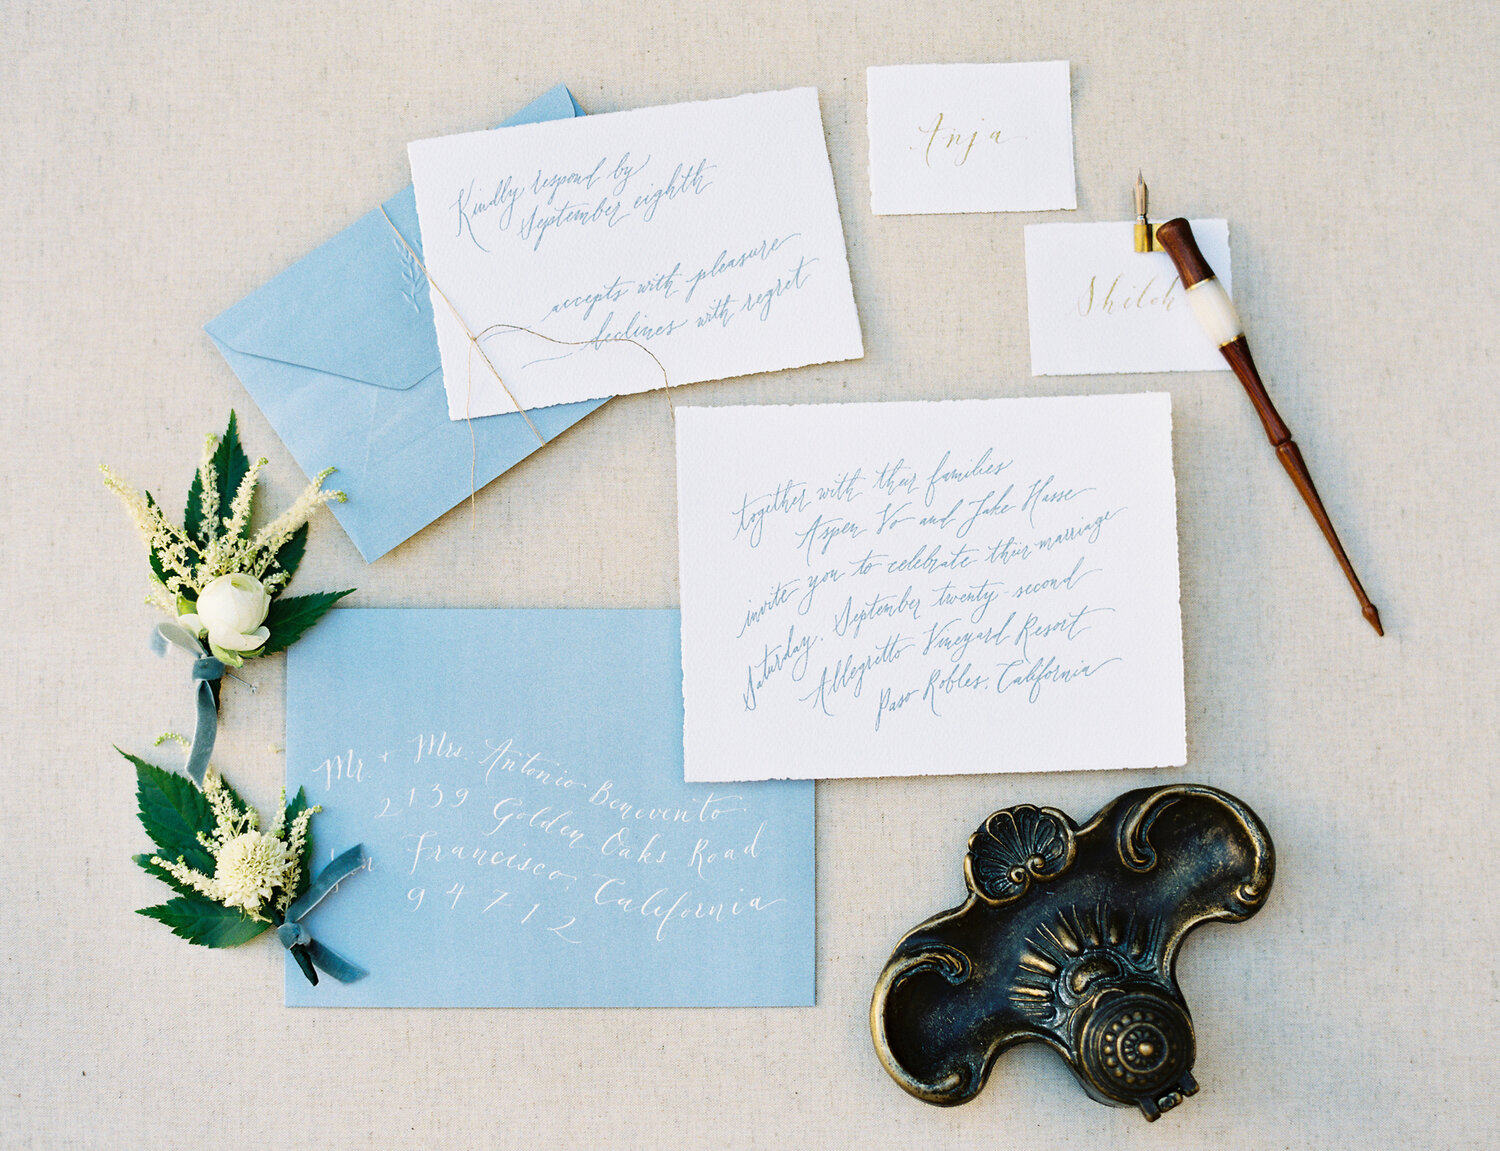 Kindly respond by
September eighth
accepts with pleasure
declines with regret
Anja
Shiloh
together with their families
Aspen Vo and Jake Hasse
invite you to celebrate their marriage
Saturday, September twenty-second
Allegretto Vineyard Resort
Paso Robles, California
Mr. + Mrs. Antonio Benevento
2139 Golden Oaks Road
San Francisco, California
94712